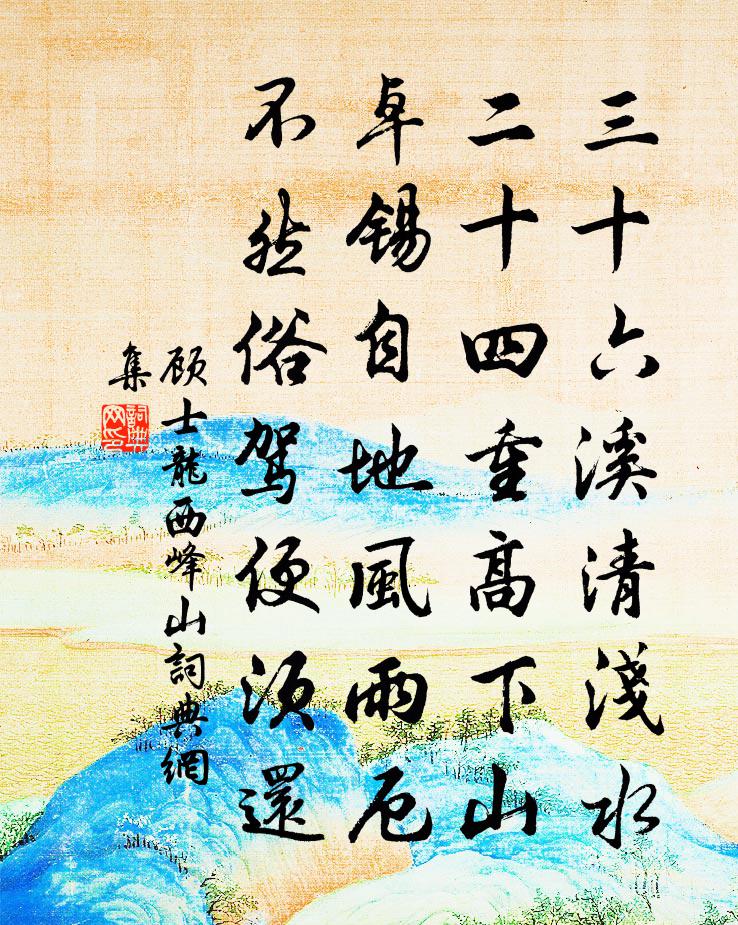 三十六溪清淺水
二十四重高下山
卓錫自地風雨厄
不然俗駕便須還
顾士龍西峰山詞典網
集
詞典網印